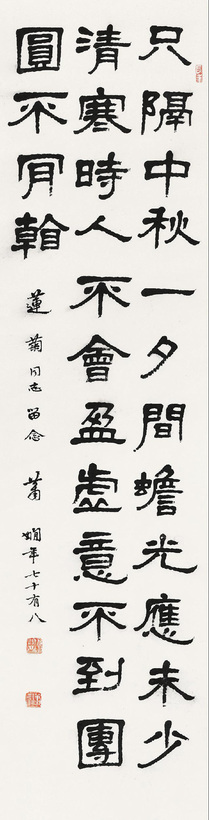 只隔中秋一夕間蟾光應未少
清寒時人不會盈虛意不到團
圓不肎看
蓮菊同志留念 蕭嫻年七十有八